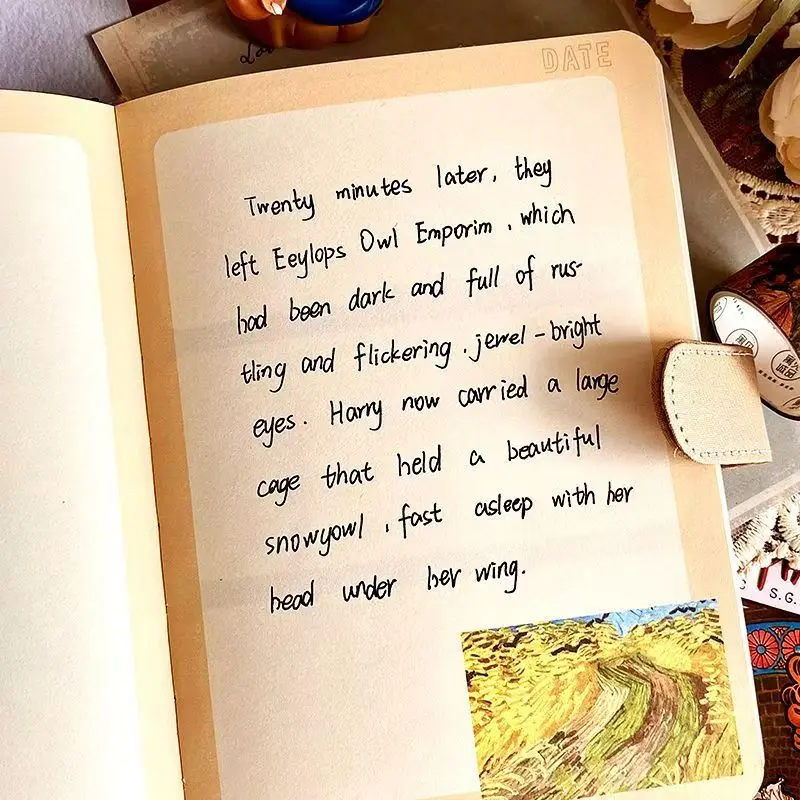 DATE
Twenty minutes later, they
left Eeylops Owl Emporim, which
had been dark and full of rus-
tling and flickering, jewel-bright
eyes. Harry now carried a large
cage that held a beautiful
snowyowl, fast asleep with her
head under her wing.
S.G.